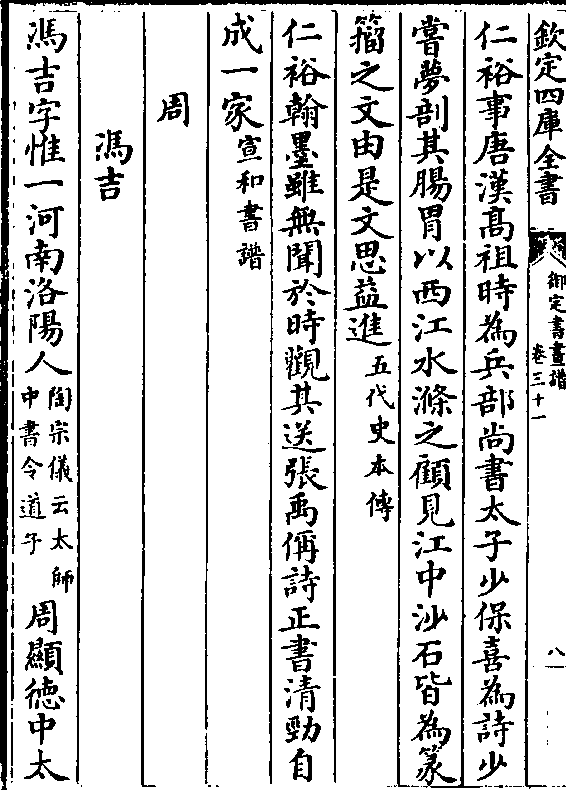 欽定四庫全書
御定書畫譜
卷三十一
八
仁裕事唐漢髙祖時為兵部尚書太子少保喜為詩少
嘗夢剖其腸胃以西江水滌之顧見江中沙石皆為篆
籀之文由是文思益進五代史本傳
仁裕翰墨雖無聞於時觀其送張禹偁詩正書清勁自
成一家宣和書譜
周
馮吉
馮吉字惟一河南洛陽人陶宗儀云太師中書令道子周顯徳中太